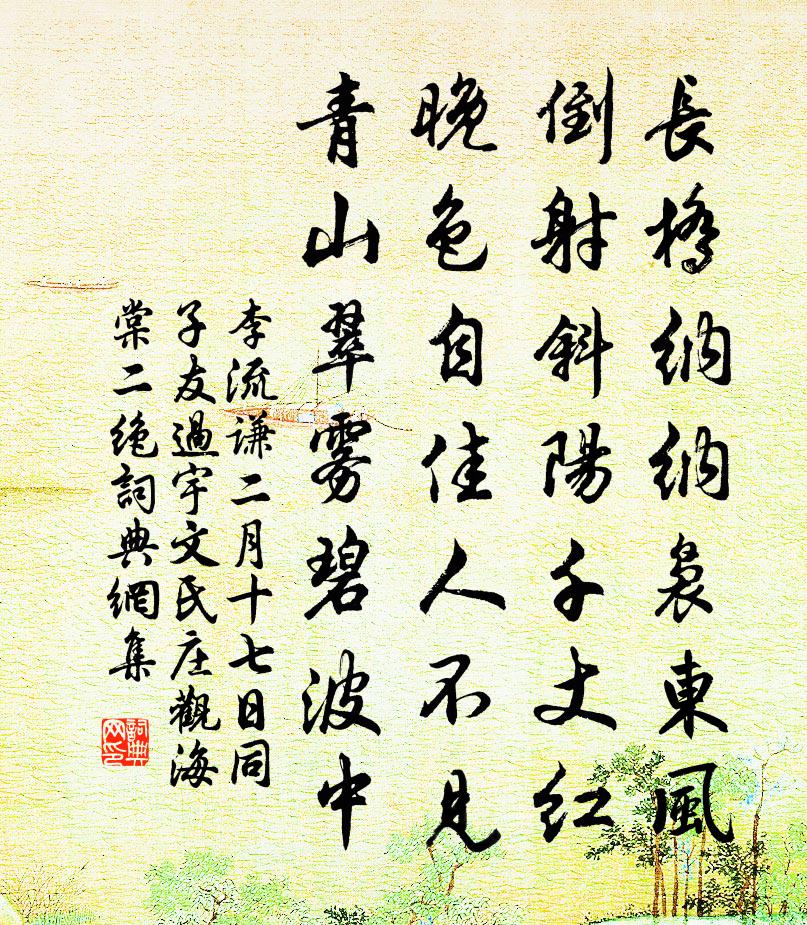 長橋納納裊東風
倒射斜陽千丈紅
晚色自佳人不見
青山翠雾碧波中
李流謙二月十七日同
子友過宇文氏庄觀海
棠二绝詞典網集
詞典
网印